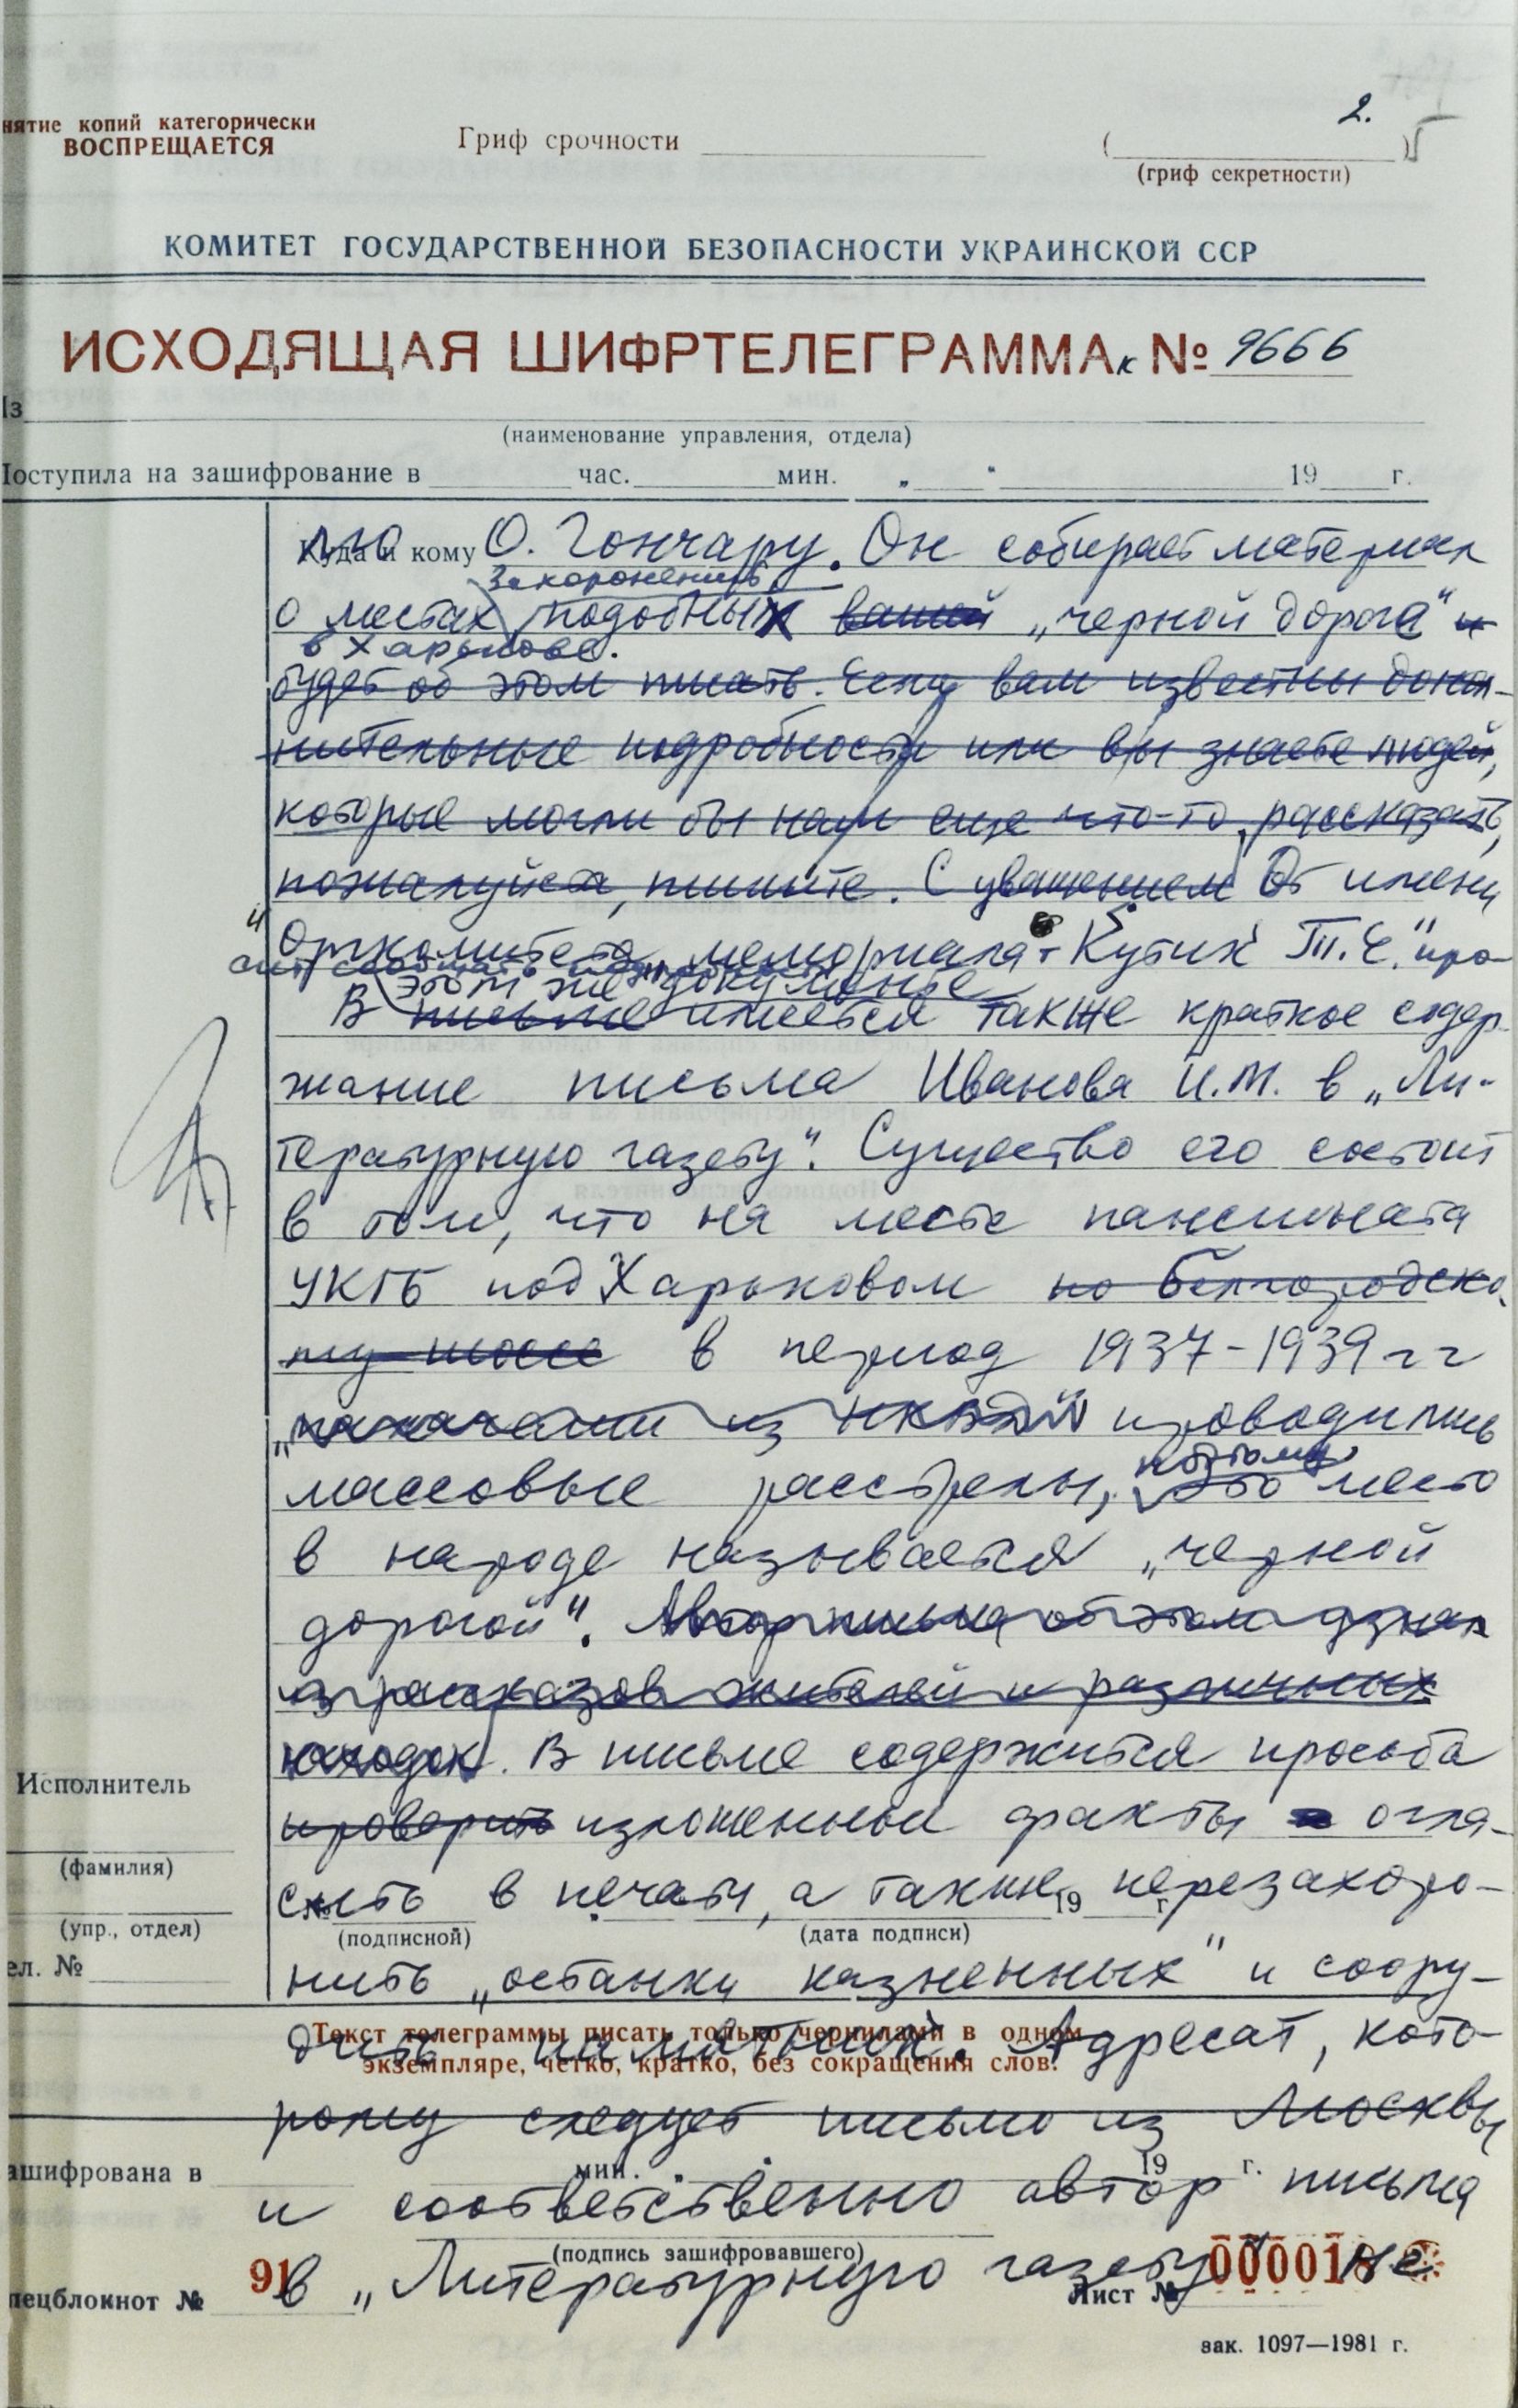 2.
нятие копий категорически
ВОСПРЕЩАЕТСЯ
Гриф срочности
(гриф секретности)
КОМИТЕТ ГОСУДАРСТВЕННОЙ БЕЗОПАСНОСТИ УКРАИНСКОЙ ССР
ИСХОДЯЩАЯ ШИФРТЕЛЕГРАММА к № 9666
Из
(наименование управления, отдела)
Поступила на зашифрование в час. мин. „ " 19 г.
Куда и кому
О. Гончару. Он собирает материал
захоронений
о местах подобных вашей „черной дороге" и
в Харькове.
будет об этом писать. Если вам известны допол-
нительные подробности или вы знаете людей,
которые могли бы нам еще что-то рассказать,
пожалуйста, пишите. С уважением От имени
Оргкомитета „мемориала" Кутик Т.Е." про-
сит сообщать подробности
этом же документе
В письме имеется также краткое содер-
жание письма Иванова И.М. в „Ли-
тературную газету". Существо его состоит
в том, что на месте пансионата
УКГБ под Харьковом по Белгородско-
му шоссе в период 1937-1939 г г
„палачами из НКВД" проводились
поэтому
массовые расстрелы, это место
в народе называется „черной
дорогой". Автор письма об этом узнал
из рассказов жителей и различных
находок. В письме содержится просьба
проверить изложенные факты огла-
сить в печати, а также перезахоро-
нить „останки казненных" и соору-
дить памятник. Адресат, кото-
рому следует письмо из Москвы
и соответственно автор письма
в „Литературную газету" не
Исполнитель
(фамилия)
(упр., отдел)
ел. №
№ 19 г
(подписной) (дата подписи)
Текст телеграммы писать только чернилами в одном
экземпляре, четко, кратко, без сокращения слов.
ашифрована в мин. „ " 19 г.
(подпись зашифровавшего)
пецблокнот № 91
Лист № 000018
зак. 1097—1981 г.